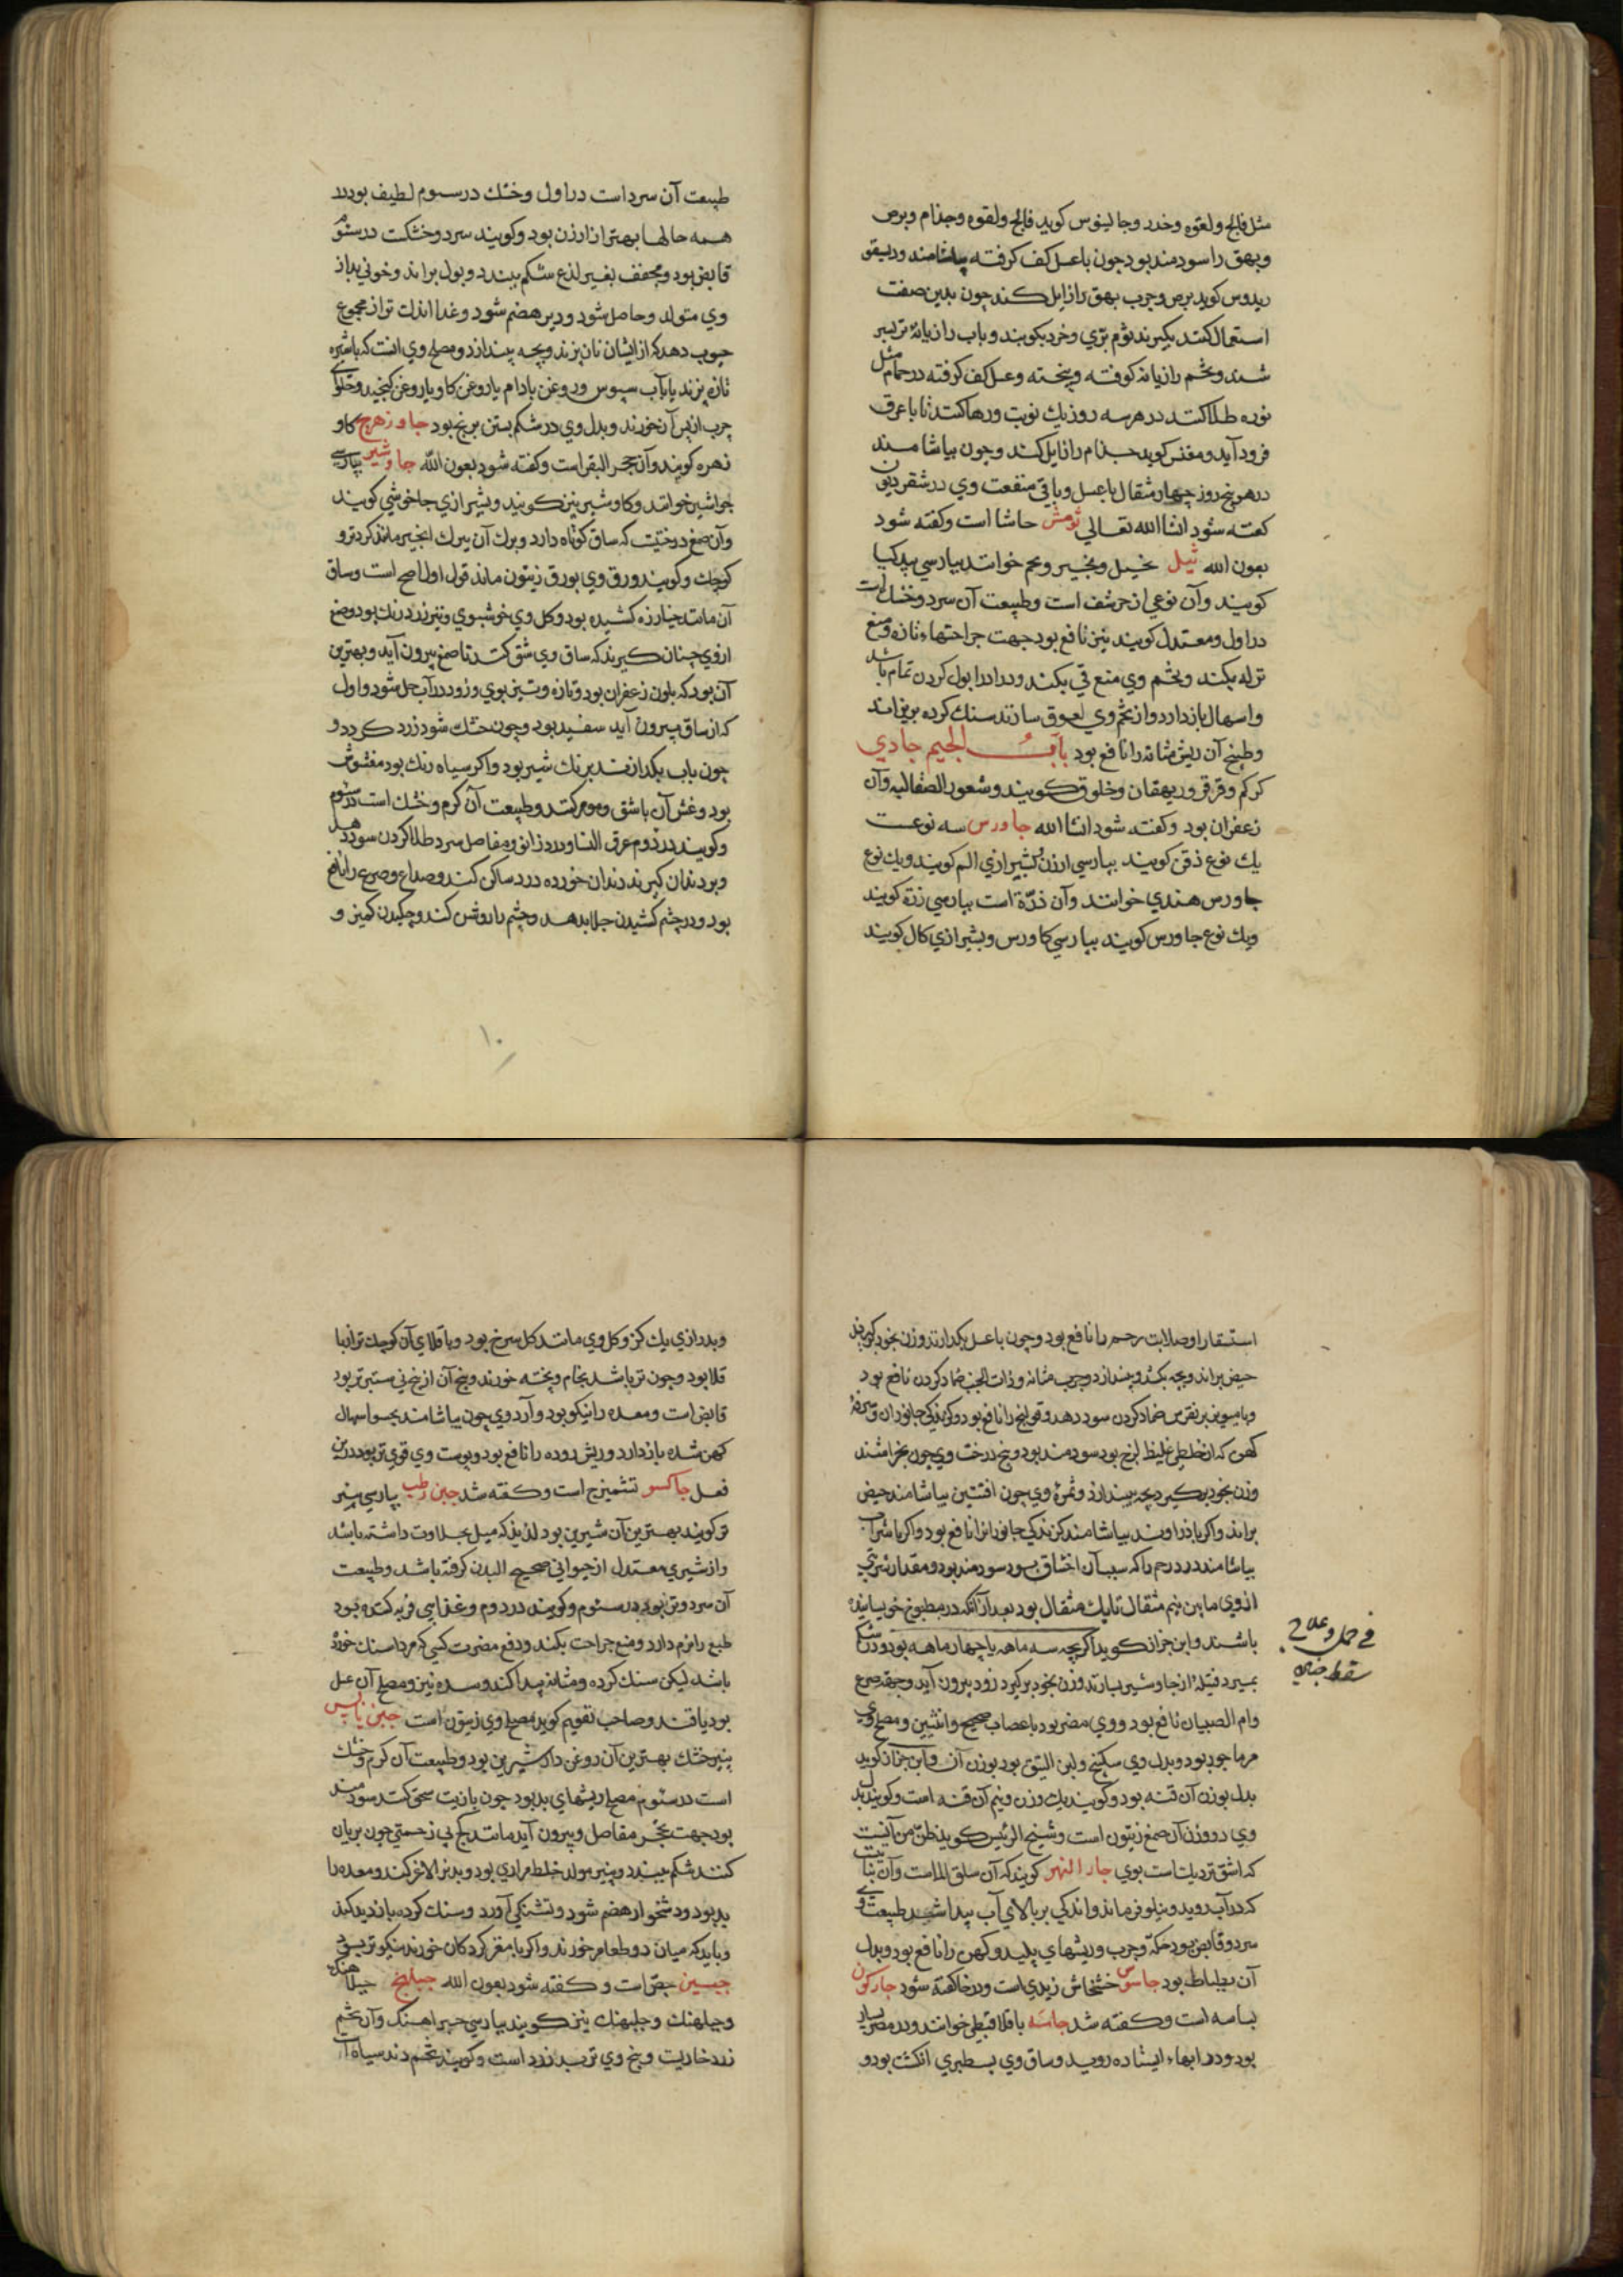 مثل فالج ولقوه وخدر وجالينوس كويد فالج ولقوه وجذام وبرص
وبهق را سودمند بود چون باعسل كف كرفته بياشامند وديسقو
ريدوس كويد برص وجرب بهق را زايل كند چون بدين صفت
استعمال كنند بكيرند ثوم برّي وخرد بكوبند وباب رازيانهٔ تر
شند وتخم رازيانه كوفته وپخته وعسل كف كرفته در حمام مثل
نوره طلا كنند در هر سه روز يك نوبت ورها كنند تا با عرق
فرود آيد كويد جذام را زايل كند وچون بياشامند
در هر پنج روز چهار مثقال باعسل وباقي منفعت وي در شقرديون
كفته شود انشا الله تعالي ثومش حاشا است وكفته شود
بعون الله ثيل نخيل ونجير ونجم خوانند بپارسي بيدكيا
كويند وآن نوعي از حرشف است وطبيعت آن سرد وخشك است
در اول ومعتدل كويند نيز نافع بود جهت جراحتهاء تازه ومنع
نزله بكند وتخم وي منع قي بكند وادرار بول كردن تمام باشد
واسهال باز دارد واز تخم وي لعوق سازند سنك كرده بريزاند
وطبيخ آن ريش مثانه را نافع بود باب الجيم جادي
كركم وقرقر وريهقان وخلوق كويند وشعور الصقالبه وآن
زعفران بود وكفته شود انشا الله جاورس سه نوعست
يك نوع دقن كويند بپارسي ارزن وبشيرازي الم كويند ويك نوع
جاورس هندي خوانند وآن ذرّة است بپارسي زرة كويند
ويك نوع جاورس كويند بپارسي كاورس وبشيرازي كال كويند
طبيعت آن سرد است در اول وخشك در سوم لطيف بود در
همه حالها بهتر از ارزن بود وكويند سرد وخشكت در سوم
قابض بود ومجفف بغير لذع شكم ببندد وبول براند وخوني بد از
وي متولد وحاصل شود ودير هضم شود وغذا اندك تر از مجموع
حبوب دهد كه از ايشان نان پزند وبچه بيندازد ومصلح وي انست كه باشير
تازه پزند يا باآب سبوس وروغن بادام يا روغن كاو يا روغن كنجيد وحلواي
چرب از پس آن خورند وبدل وي در شكم بستن برنج بود جاوزهرج كاو
زهره كويند وآن حجر البقر است وكفته شود بعون الله جاوشير بپارسي
جواشير خوانند وكاوشير نيز كويند وبشيرازي جاخوشي كويند
وآن صمغ درختيت كه ساق كوتاه دارد وبرك آن ببرك انجير ماند كردتر و
كوچك وكويند ورق وي بورق زيتون ماند قول اول اصح است وساق
آن مانند خيارزه كشيده بود وكل وي خوشبوي وزرد رنك بود وصمغ
از وي چنان كيرند كه ساق وي شق كنند تا صمغ بيرون آيد وبهترين
آن بود كه بلون زعفران بود وتازه وتيز بوي وزود در آب حل شود واول
كه از ساق بيرون آيد سفيد بود وچون خشك شود زرد كردد و
چون باب بكدازند برنك شير بود واكر سياه رنك بود مغشوش
بود وغش آن باشق وموم كنند وطبيعت آن كرم وخشك است در سوم
وكويند در دوم عرق النسا ودرد زانو ومفاصل سرد طلا كردن سود دهد
وبر دندان كيرند دندان خورده درد ساكن كند وصداع وصرع را نافع
بود ودر چشم كشيدن جلا بدهد وچشم را روشن كند وچكيدن كميز و
١٠
استسقا را وصلابت رحم را نافع بود وچون باعسل بكدازند وزن بخود كيرند
حيض براند وبچه بكشد وبيندازد وجرب مثانه وذات الجنب ضماد كردن نافع بود
وبا مويز بر نقرس ضماد كردن سود دهد وقولنج را نافع بود وكزيدكي جانوران
كهن كه از خلطي غليظ لزج بود سودمند بود وبيخ درخت وي چون بخراشند
وزن بخود بر كيرد بچه بيندازد وثمرهٔ وي چون با افسنتين بياشامند حيض
براند واكر با زراوند بياشامند كزندكي جانوران را نافع بود واكر با شراب
بياشامند درد رحم را كه سبب آن اختناق بود سودمند بود ومقدار شربتي
از وي مابين نيم مثقال تا يك مثقال بود بعد از آنكه در مطبوخ خويسانيده
باشند وابن جزار كويد اكر بچه سه ماهه يا چهار ماهه بود ودر شكم
بميرد فتيله از جاوشير بسازند وزن بخود بر كيرد زود بيرون آيد وجهت صرع
وام الصبيان نافع بود ووي مضر بود باعصاب صحيح وانثيين ومصلح وي
مرماحوز بود وبدل وي سكبينج ولبن التين بود بوزن آن وابن جزار كويد
بدل بوزن آن قنه بود وكويند يك وزن ونيم آن قنه است وكويند بدل
وي دو وزن آن صمغ زيتون است وشيخ الرئيس كويد ظنّ من آنست
كه اشق نزديكست بوي جار النهر كويند كه آن سلق الماست وآن نباتيست
كه در آب رويد ونيلوفر ماند واندكي بر بالاي آب پيدا شود طبيعت وي
سرد وقابض بود حكّه وجرب وريشهاي پليد وكهن را نافع بود وبدل
آن بطباط بود جاسوس خشخاش زبدي است ودر خا كفته شود جاركون
بسباسه است وكفته شد جامسه باقلا قبطي خوانند ودر مصر بسيار
بود ودر ابهاء ايستاده رويد وساق وي بسطبري انكشت بود و
في حمل وعلاج
سقط جنين
وبدرازي يك كز وكل وي مانند كل سرخ بود وباقلاي آن كوچك تر از با
قلا بود وچون تر باشد بخام وپخته خورند وبيخ آن از بيخ ني ستبرتر بود
قابض است ومعده را نيكو بود وآرد وي چون بياشامند بسويق اسهال
كهن شده باز دارد وريش روده را نافع بود وپوست وي قوي تر بود در اين
فعل جاكسو تشميزج است وكفته شد جبن رطب بپارسي پنير
تر كويند بهترين آن شيرين بود لذيذ كه ميل بحلاوت داشته باشد
واز شيري معتدل از حيواني صحيح البدن كرفته باشد وطبيعت
آن سرد وتر بود در سوم وكويند در دوم وغذايي فربه كننده بود
طبع را نرم دارد ومنع جراحت بكند ودفع مضرت كسي كه مرداسنك خورده
باشد ليكن سنك كرده ومثانه پيدا كند وسده نيز ومصلح آن عسل
بود يا قند وصاحب تقويم كويد مصلح وي زيتون است جبن يابس
پنير خشك بهترين آن روغن دار شيرين بود وطبيعت آن كرم وخشك
است در سوم مصلح ريشهاي بد بود چون با زيت سحق كنند سودمند
بود جهت تحجّر مفاصل وبيرون آيد مانند كج بي زحمتي چون بريان
كنند شكم ببندد وپنير مولد خلط مراري بود وبدن را لاغر كند ومعده را
بد بود ودشخوار هضم شود وتشنكي آورد وسنك كرده باز ديد كند
وبايد كه ميان دو طعام خورند واكر با مغز كردكان خورند نيكوتر بود
جبسين جصّ است وكفته شود بعون الله جبلهنج جبلاهنك
وجبلهنك وجلبهنك نيز كويند بپارسي جبراهنك وآن تخم
زرد خاريست وبيخ وي تربد زرد است وكويند تخم دند سياه است